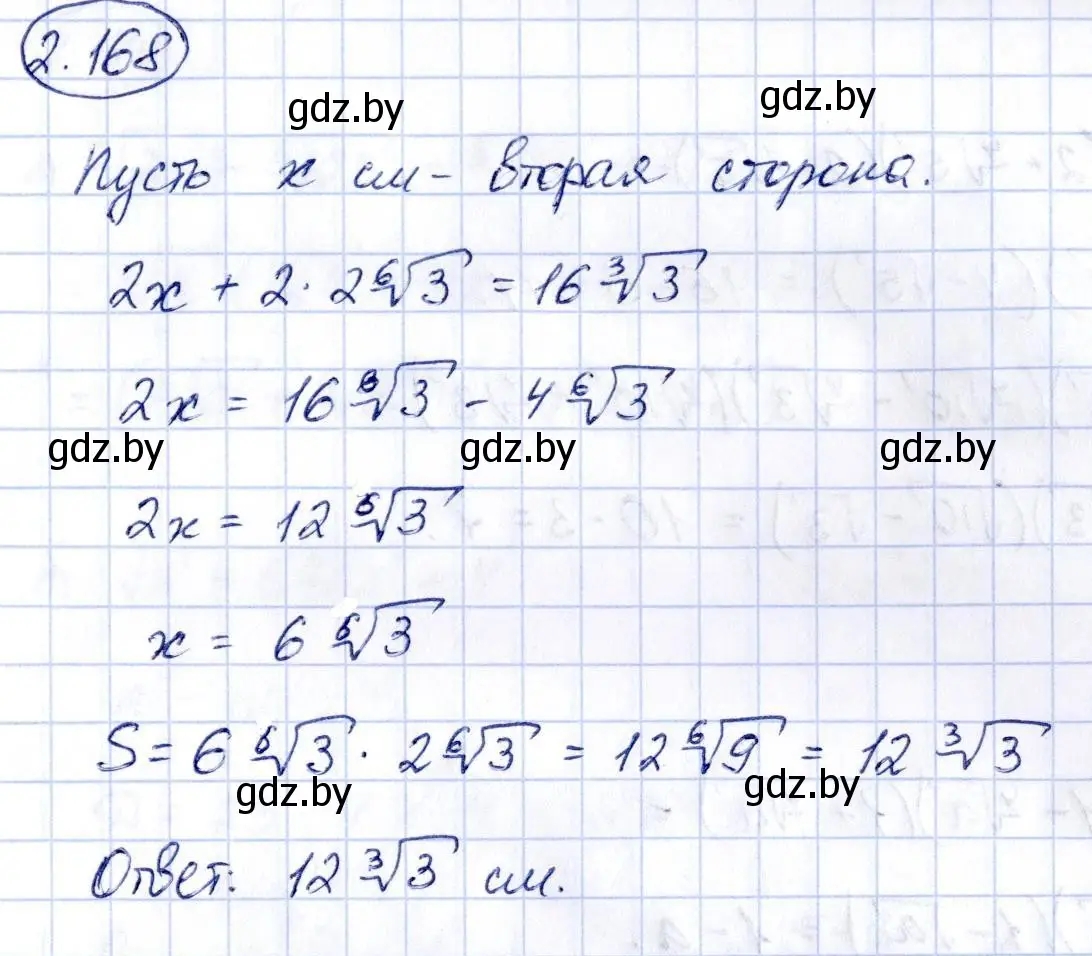 2.168
gdz.by
gdz.by
Пусть x см - вторая сторона.
2x + 2 · 2⁶√3 = 16 ³√3
2x = 16 ⁶√3 - 4 ⁶√3
gdz.by
gdz.by
gdz.by
2x = 12 ⁶√3
x = 6 ⁶√3
S = 6 ⁶√3 · 2 ⁶√3 = 12 ⁶√9 = 12 ³√3
gdz.by
gdz.by
Ответ: 12 ³√3 см.